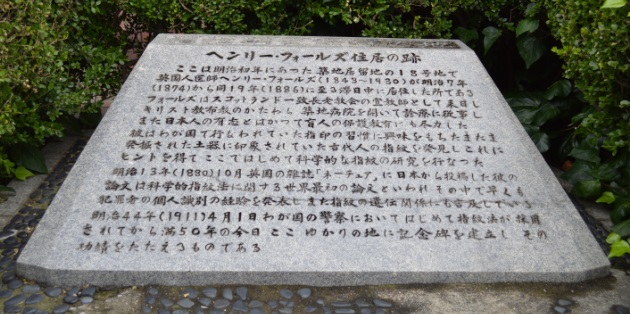 ヘンリー・フォールズ住居の跡
ここは明治初年にあった築地居留地の18号地で
英国人医師ヘンリー・フォールズ(1843-1930)が明治7年
(1874)から同19年(1886)に至る滞日中に居住した所である
フォールズはスコットランド一致長老教会の宣教師として来日し
キリスト教布教のかたわら築地病院を開いて診療に従事し
また日本人の有志とはかって盲人の保護教育にも尽力した
彼はわが国で行なわれていた指印の習慣に興味をもちたまたま
発掘された土器に印象されていた古代人の指紋を発見しこれに
ヒントを得てここではじめて科学的な指紋の研究を行なった
明治13年(1880)10月英国の雑誌「ネーチュア」に日本から投稿した彼の
論文は科学的指紋法に関する世界最初の論文といわれその中で早くも
犯罪者の個人識別の経験を発表しまた指紋の遺伝関係にも言及している
明治44年(1911)4月1日わが国の警察においてはじめて指紋法が採用
されてから満50年の今日ここゆかりの地に記念碑を建立しその
功績をたたえるものである